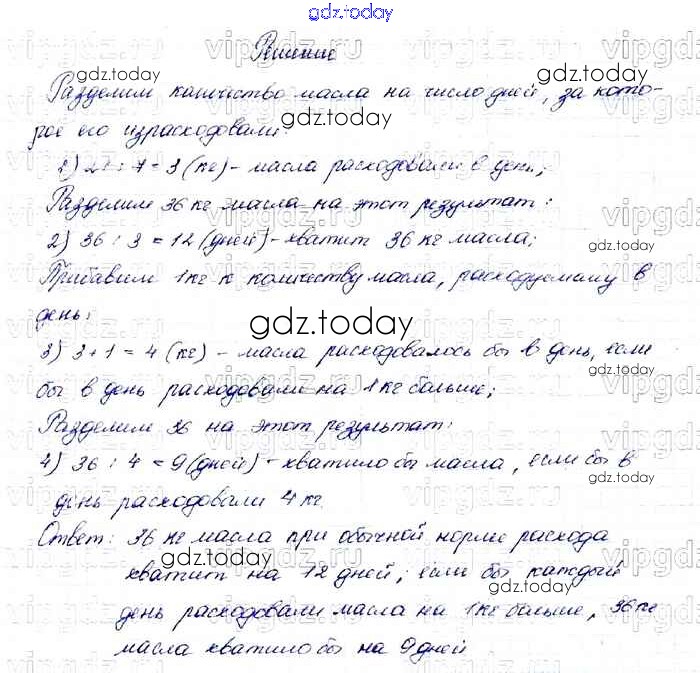 gdz.today
Решение
Разделим количество масла на число дней, за кото-
рое его израсходовали:
1) 21 : 7 = 3 (кг) - масла расходовали в день;
Разделим 36 кг масла на этот результат:
2) 36 : 3 = 12 (дней) - хватит 36 кг масла;
Прибавим 1 кг к количеству масла, расходуемому в
день:
3) 3 + 1 = 4 (кг) - масла расходовалось бы в день, если
бы в день расходовали на 1 кг больше;
Разделим 36 на этот результат:
4) 36 : 4 = 9 (дней) - хватило бы масла, если бы в
день расходовали 4 кг.
Ответ: 36 кг масла при обычной норме расхода
хватит на 12 дней; если бы каждый
день расходовали масла на 1 кг больше, 36 кг
масла хватило бы на 9 дней